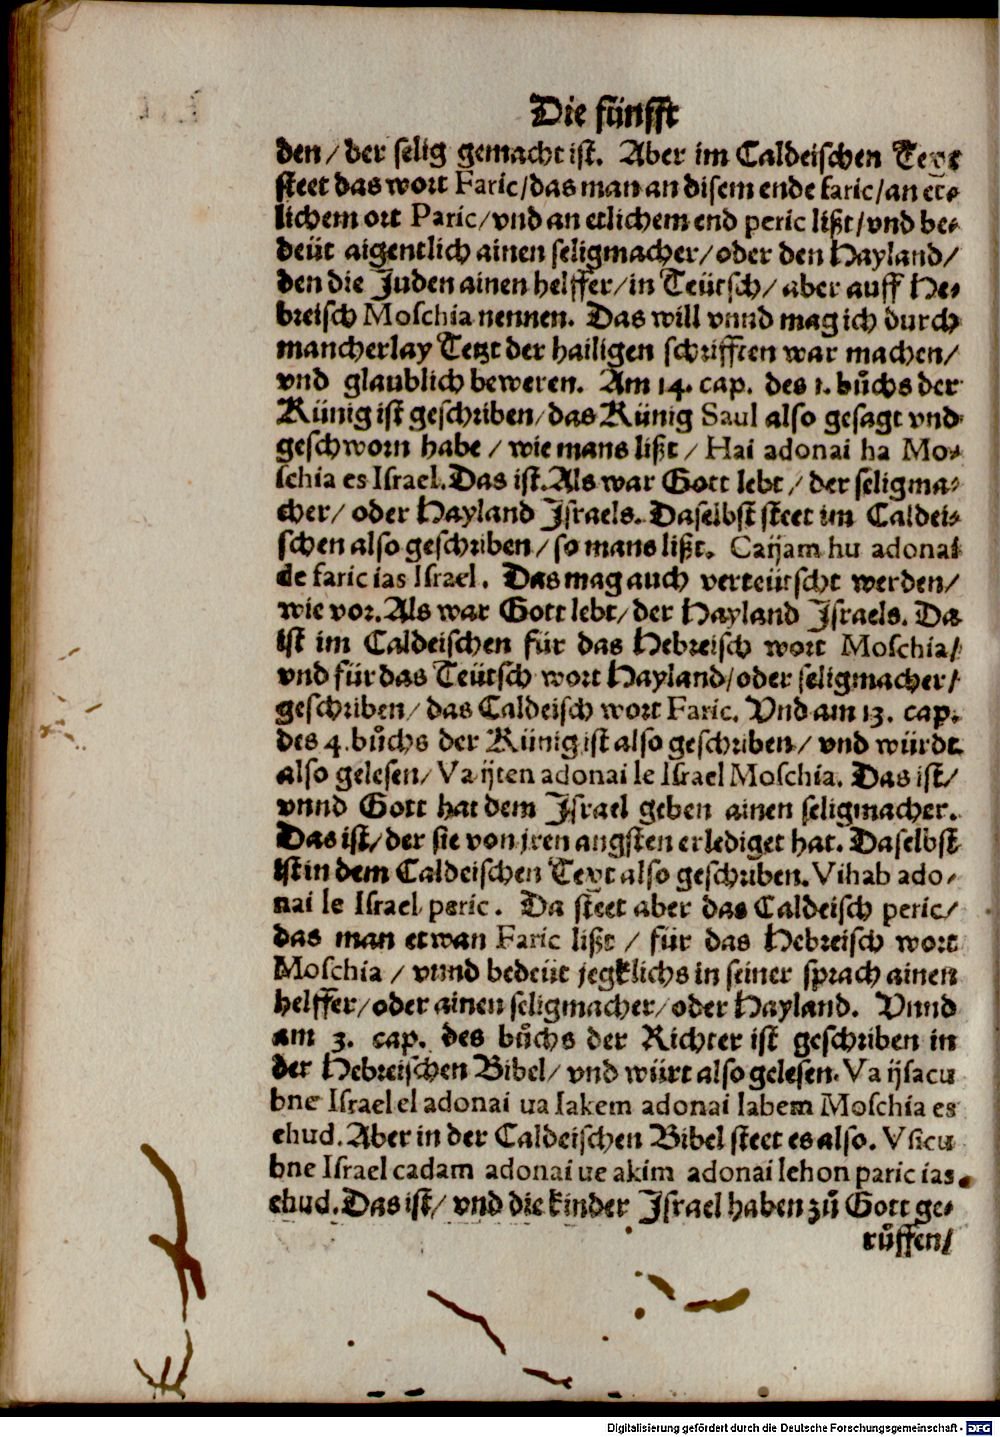 Die fünfft
den / der selig gemacht ist. Aber im Caldeischen Text
steet das wort Faric / das man an disem ende faric / an et⸗
lichem ort Paric / vnd an etlichem end peric lißt / vnd be⸗
deüt aigentlich ainen seligmacher / oder den Hayland /
den die Juden ainen helffer / in Teütsch / aber auff He⸗
breisch Moschia nennen. Das will vnnd mag ich durch
mancherlay Tetzt der hailigen schrifften war machen /
vnd glaublich beweren. Am 14. cap. des 1. bůchs der
Künig ist geschriben / das Künig Saul also gesagt vnd
geschworn habe / wie mans lißt / Hai adonai ha Mo⸗
schia es Israel. Das ist. Als war Gott lebt / der seligma⸗
cher / oder Hayland Israels. Daselbst steet im Caldei⸗
schen also geschriben / so mans lißt. Caijam hu adonai
de faric ias Israel. Das mag auch verteütscht werden /
wie vor. Als war Gott lebt / der Hayland Israels. Da
ist im Caldeischen für das Hebreisch wort Moschia /
vnd für das Teütsch wort Hayland / oder seligmacher /
geschriben / das Caldeisch wort Faric. Vnd am 13. cap.
des 4. bůchs der Künig ist also geschriben / vnd würdt
also gelesen / Va ijten adonai le Israel Moschia. Das ist /
vnnd Gott hat dem Israel geben ainen seligmacher.
Das ist / der sie von jren angsten erlediget hat. Daselbst
ist in dem Caldeischen Text also geschriben. Vihab ado⸗
nai le Israel paric. Da steet aber das Caldeisch peric /
das man etwan Faric lißt / für das Hebreisch wort
Moschia / vnnd bedeüt jegklichs in seiner sprach ainen
helffer / oder ainen seligmacher / oder Hayland. Vnnd
am 3. cap. des bůchs der Richter ist geschriben in
der Hebreischen Bibel / vnd würt also gelesen. Va ijsacu
bne Israel el adonai ua Iakem adonai labem Moschia es
ehud. Aber in der Caldeischen Bibel steet es also. Vsicu
bne Israel cadam adonai ue akim adonai lehon paric ias
ehud. Das ist / vnd die kinder Israel haben zů Gott ge⸗
růffen /
Digitalisierung gefördert durch die Deutsche Forschungsgemeinschaft - DFG